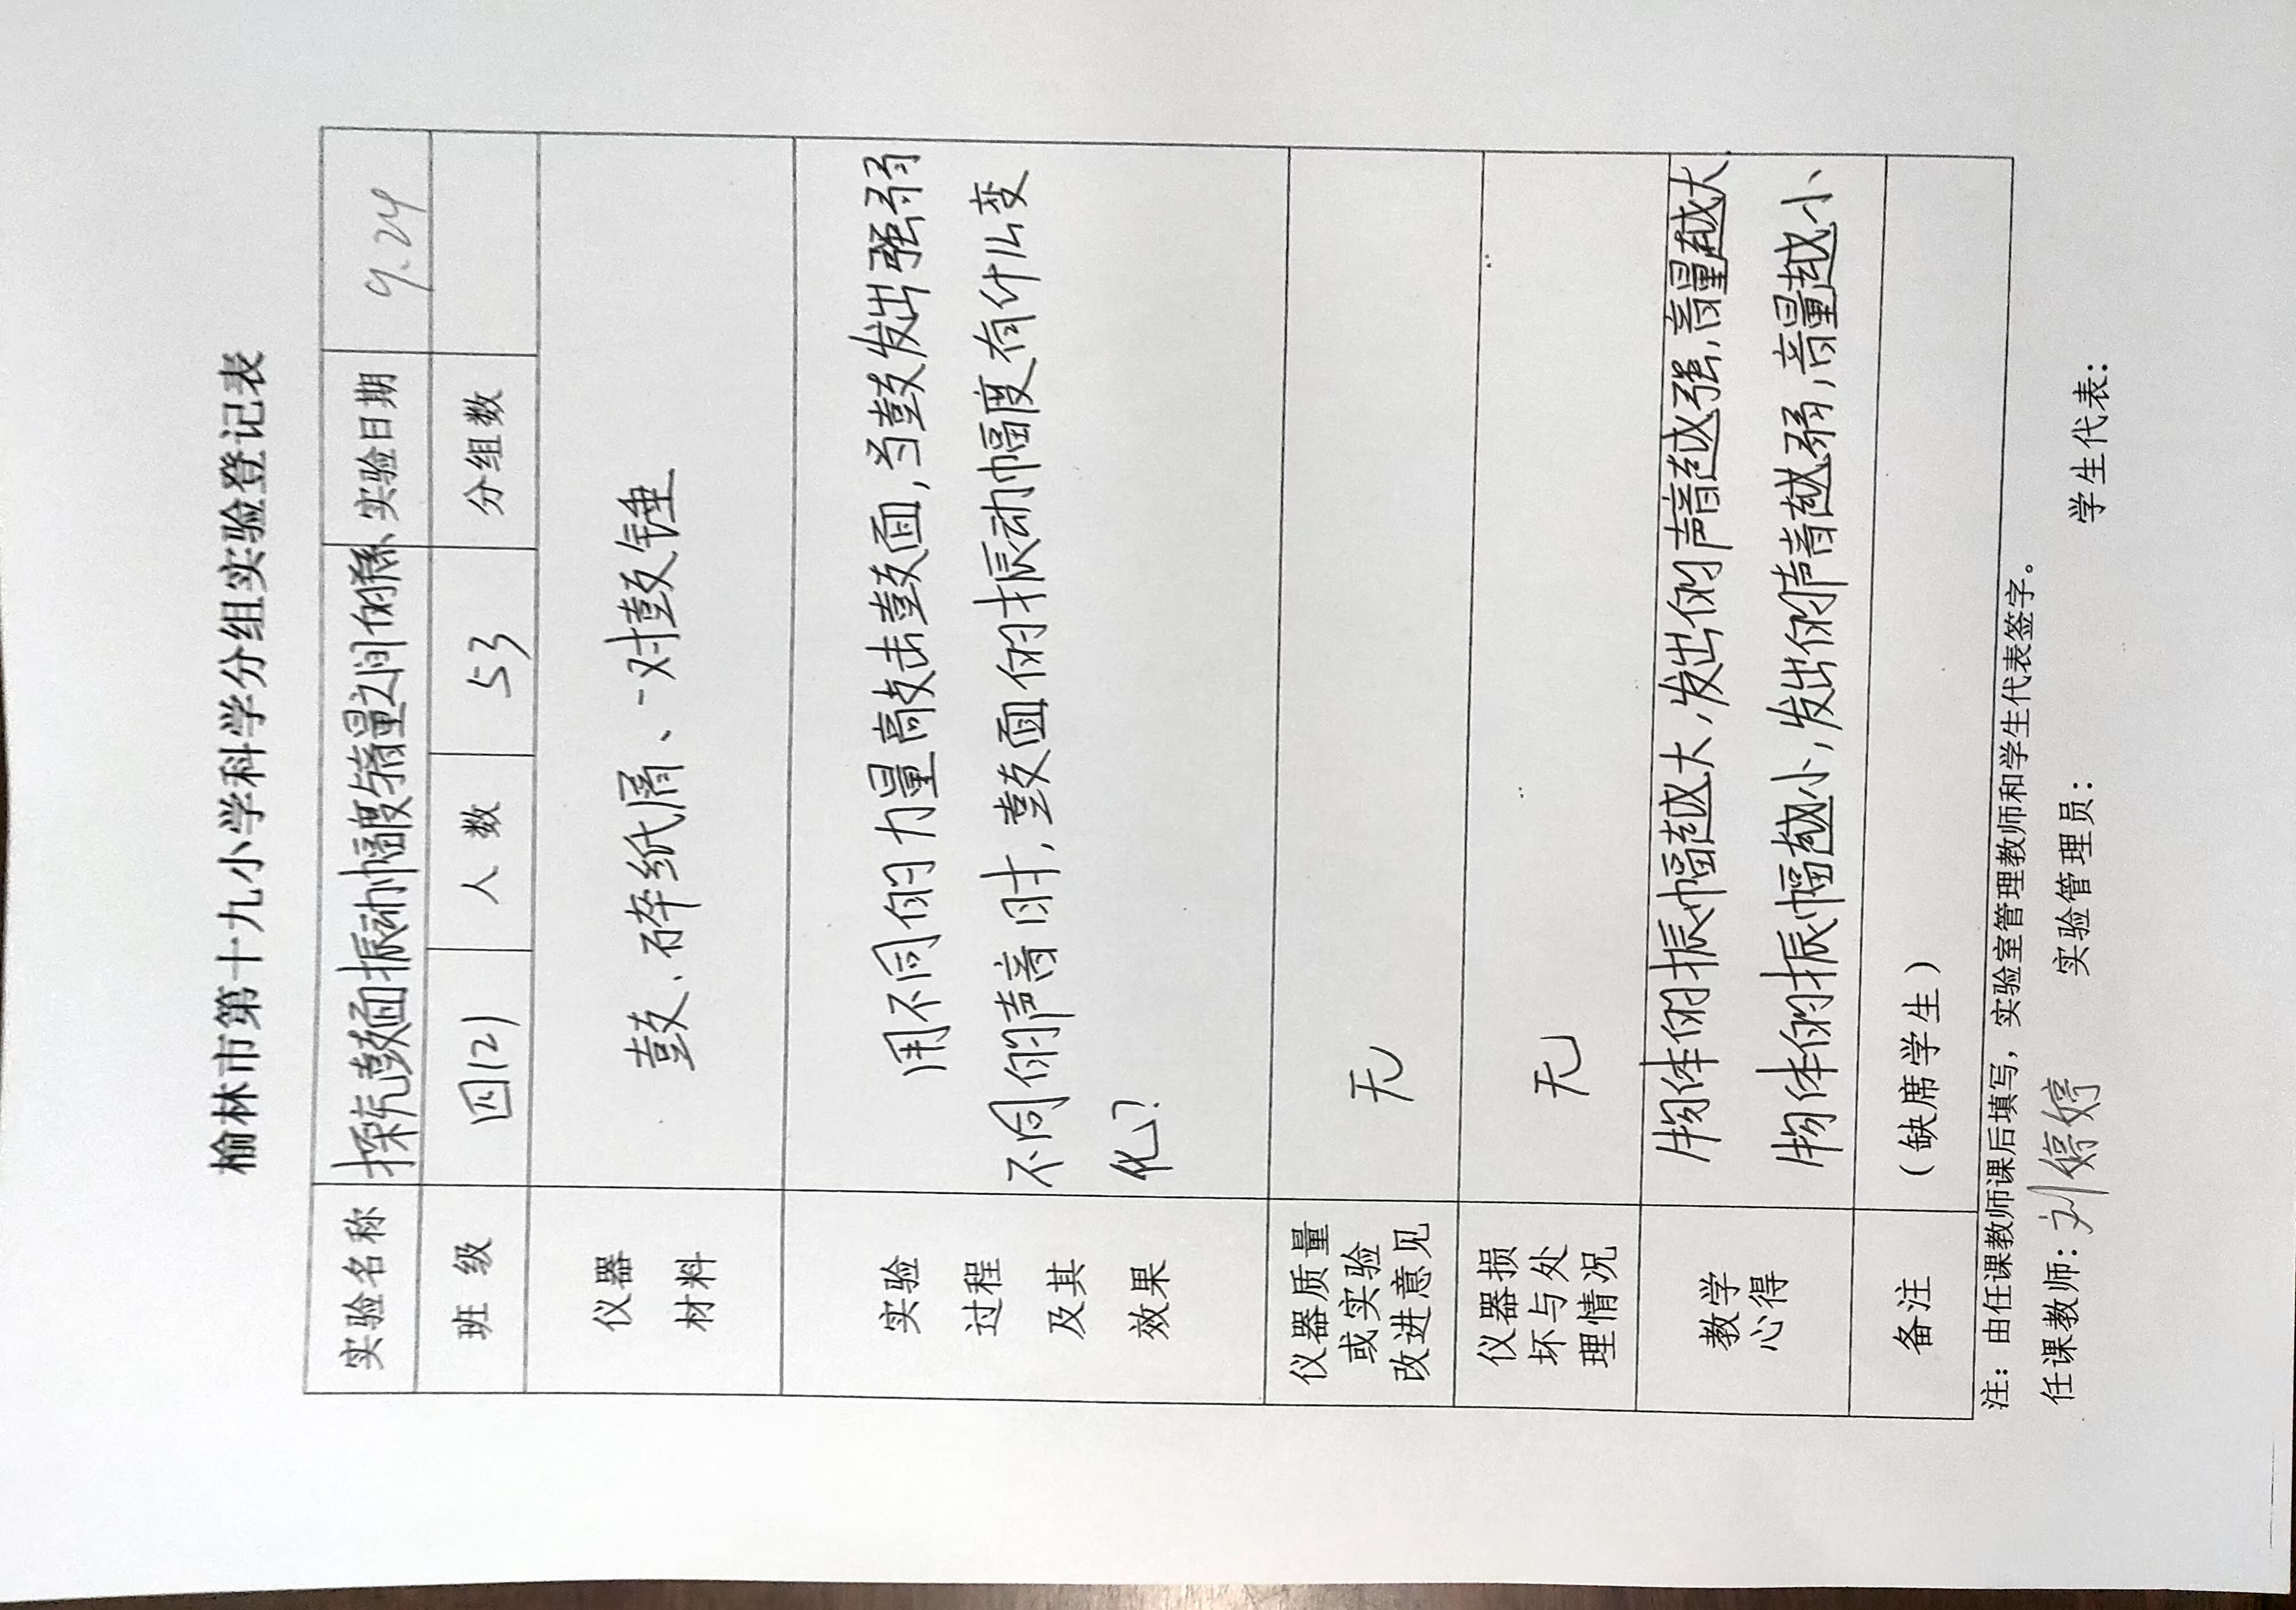 榆林市第十九小学科学分组实验登记表
实验名称 探究鼓面振动幅度与音量之间的关系 实验日期 9.24
班 级 四(2) 人 数 53 分组数
仪器 材料 鼓、碎纸屑、一对鼓锤
实验 过程 及其 效果
用不同的力量敲击鼓面,当鼓发出强弱
不同的声音时,鼓面的振动幅度有什么变
化?
仪器质量或实验改进意见 无
仪器损坏与处理情况 无
教学心得
物体的振幅越大,发出的声音越强,音量越大
物体的振幅越小,发出的声音越弱,音量越小
备注 (缺席学生)
注:由任课教师课后填写,实验室管理教师和学生代表签字。
任课教师:刘婷婷 实验管理员: 学生代表: